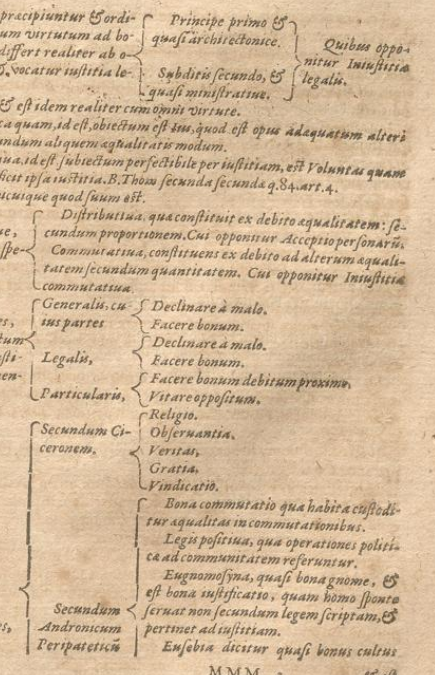 præcipiuntur & ordi-
um virtutum ad bo-
differt realiter ab o-
vocatur iustitia le-
Principe primo &
quasi architectonice.
Subditis secundo, &
quasi ministratiue.
Quibus oppo-
nitur Iniustitia
legalis.
& est idem realiter cum omni virtute.
ca quam, id est, obiectum est ius, quod est opus adæquatum alteri
undum aliquem æqualitatis modum.
ua, id est, subiectum perfectibile per iustitiam, est Voluntas quam
ficit ipsa iustitia. B. Thom secunda secundæ q. 84. art. 4.
cuique quod suum est.
ue,
spe-
Distributiua, quæ constituit ex debito æqualitatem: se-
cundum proportionem. Cui opponitur Acceptio personarũ.
Commutatiua, constituens ex debito ad alterum æquali-
tatem secundum quantitatem. Cui opponitur Iniustitia
commutatiua.
es,
tum
sti-
en-
Generalis, cu-
ius partes
Declinare à malo.
Facere bonum.
Legalis,
Declinare à malo.
Facere bonum.
Particularis,
Facere bonum debitum proximo,
Vitare oppositum.
Secundum Ci-
ceronem.
Religio.
Obseruantia.
Veritas,
Gratia,
Vindicatio.
es,
Secundum
Andronicum
Peripateticũ
Bona commutatio qua habita custodi-
tur æqualitas in commutationibus.
Legis positiua, qua operationes politi-
cæ ad communitatem referuntur.
Eugnomosyna, quasi bona gnome, &
est bona iustificatio, quam homo sponte
seruat non secundum legem scriptam, &
pertinet ad iustitiam.
Eusebia dicitur quasi bonus cultus
MMM